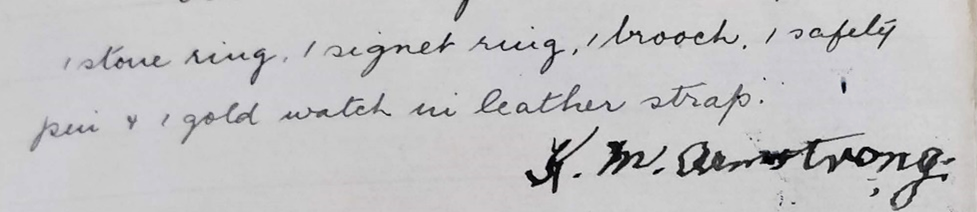 1 stone ring, 1 signet ring, 1 brooch, 1 safety
pin & 1 gold watch in leather strap.
K. M. Armstrong.